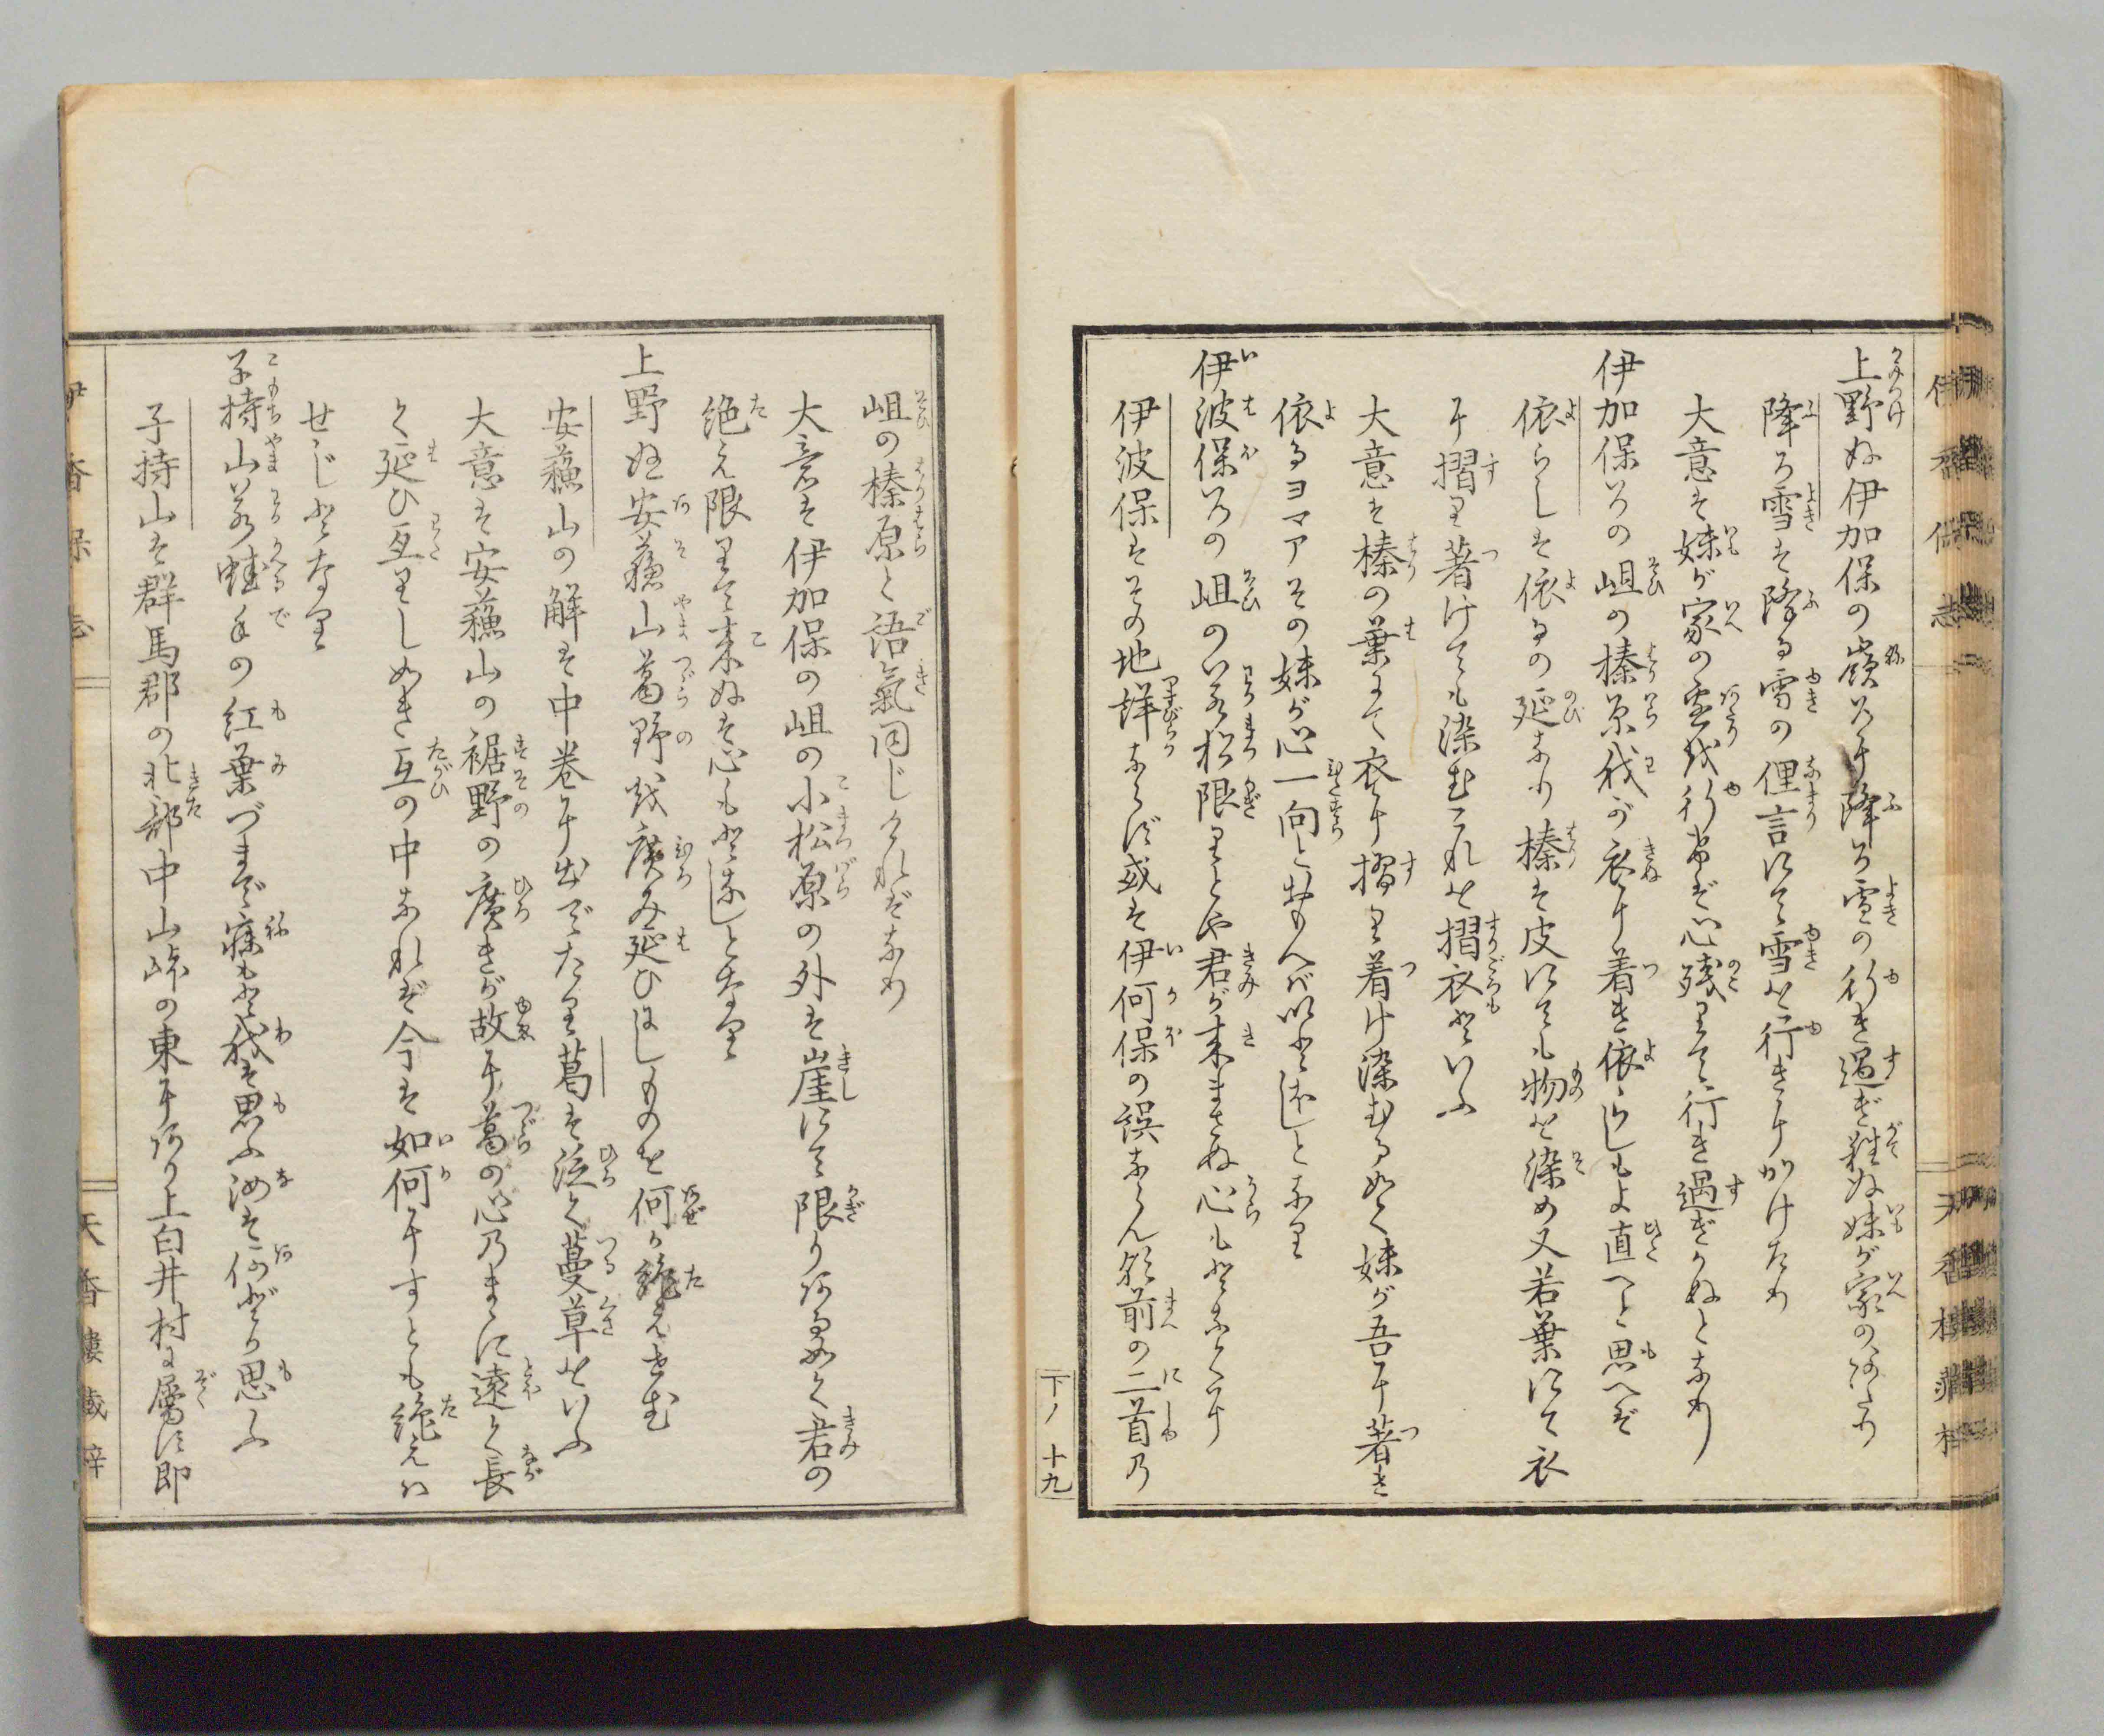 上野ぬ伊加保の嶺ろに降ろ雪の行き過ぎ難ぬ妹が家のあたり
降ろ雪は降る雪の俚言にて雪を行きにかけたり
大意は妹が家の辺を行けば心残りて行き過ぎかぬとなり
伊加保ろの岨の榛原我が衣に着き依らしもよ直へと思へば
依らしは依るの延なり榛は皮にても物を染め又若葉にて衣
に摺り著けても染むこれを摺衣といふ
大意は榛の葉にて衣に摺り着け染むる如く妹が吾に著き
依るヨマアその妹が心一向とおもへばいと
伊波保ろの岨の若松限りとや君が来まさぬ心もとなくに
伊波保はその地詳ならず或は伊何保の誤ならん前の二首乃
下ノ十九
岨の榛原と語氣同じければなり
大意は伊加保の岨の小松原の外は崖にて限りある如く君の
絶え限りて来ぬは心もとなしとなり
上野ぬ安蘓山葛野を廣み延ひにしものを何か絶えせむ
安蘓山の解は中巻に出でたり葛は泛く蔓草をいふ
大意は安蘓山の裾野の廣きが故に葛の心乃まゝに遠く長
く延ひ互りし如き互の中なれば今は如何にすとも絶えハ
せじとなり
子持山若蛙手の紅葉づまで寐もと我は思ふ汝は何どか思ふ
子持山は群馬郡の北部中山峠の東にあり上白井村に屬す即
伊香保志
天香樓蔵梓